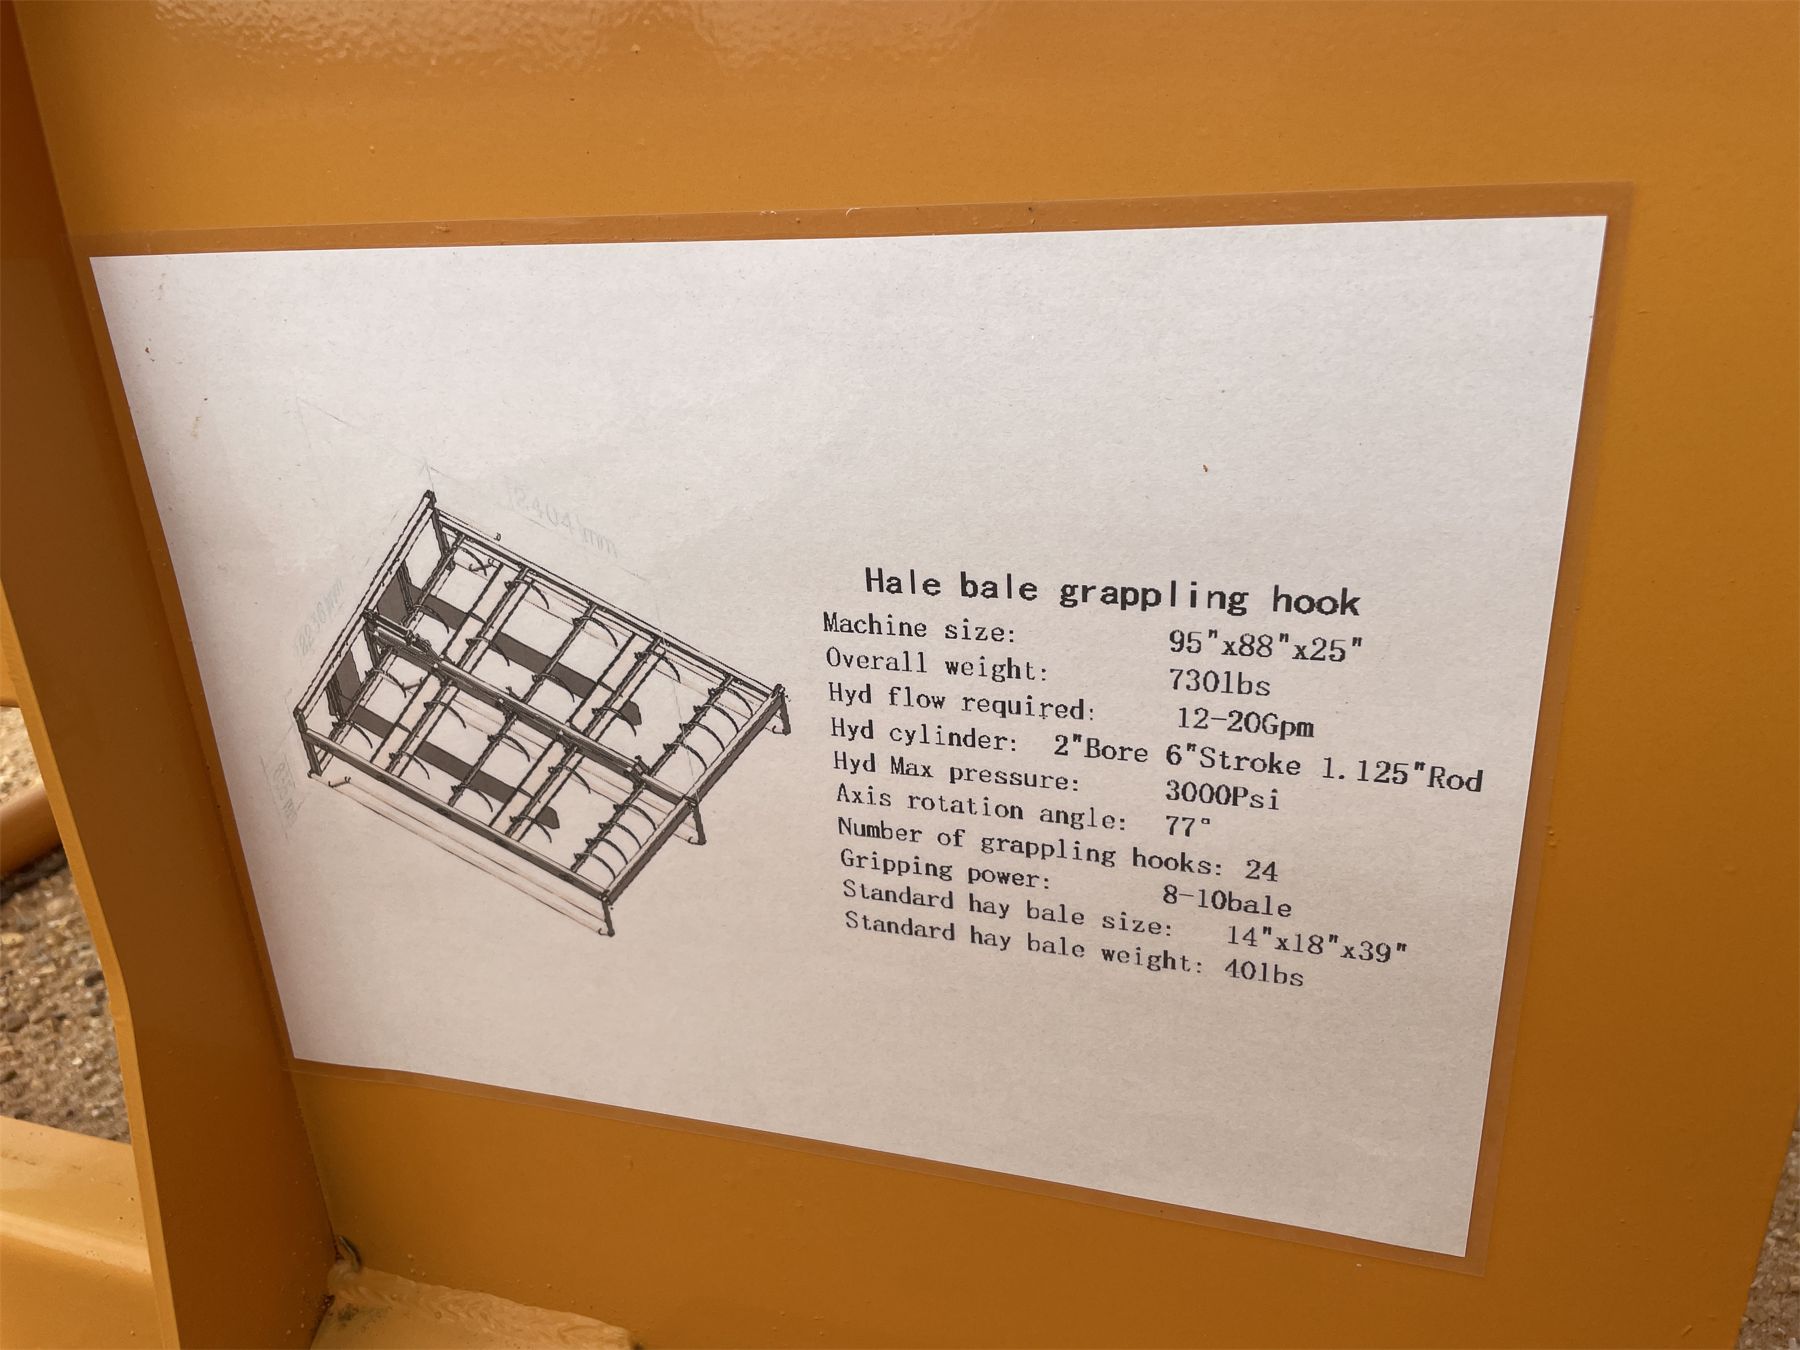 Hale bale grappling hook
Machine size: 95"x88"x25"
Overall weight: 730lbs
Hyd flow required: 12-20Gpm
Hyd cylinder: 2"Bore 6"Stroke 1.125"Rod
Hyd Max pressure: 3000Psi
Axis rotation angle: 77°
Number of grappling hooks: 24
Gripping power: 8-10bale
Standard hay bale size: 14"x18"x39"
Standard hay bale weight: 40lbs